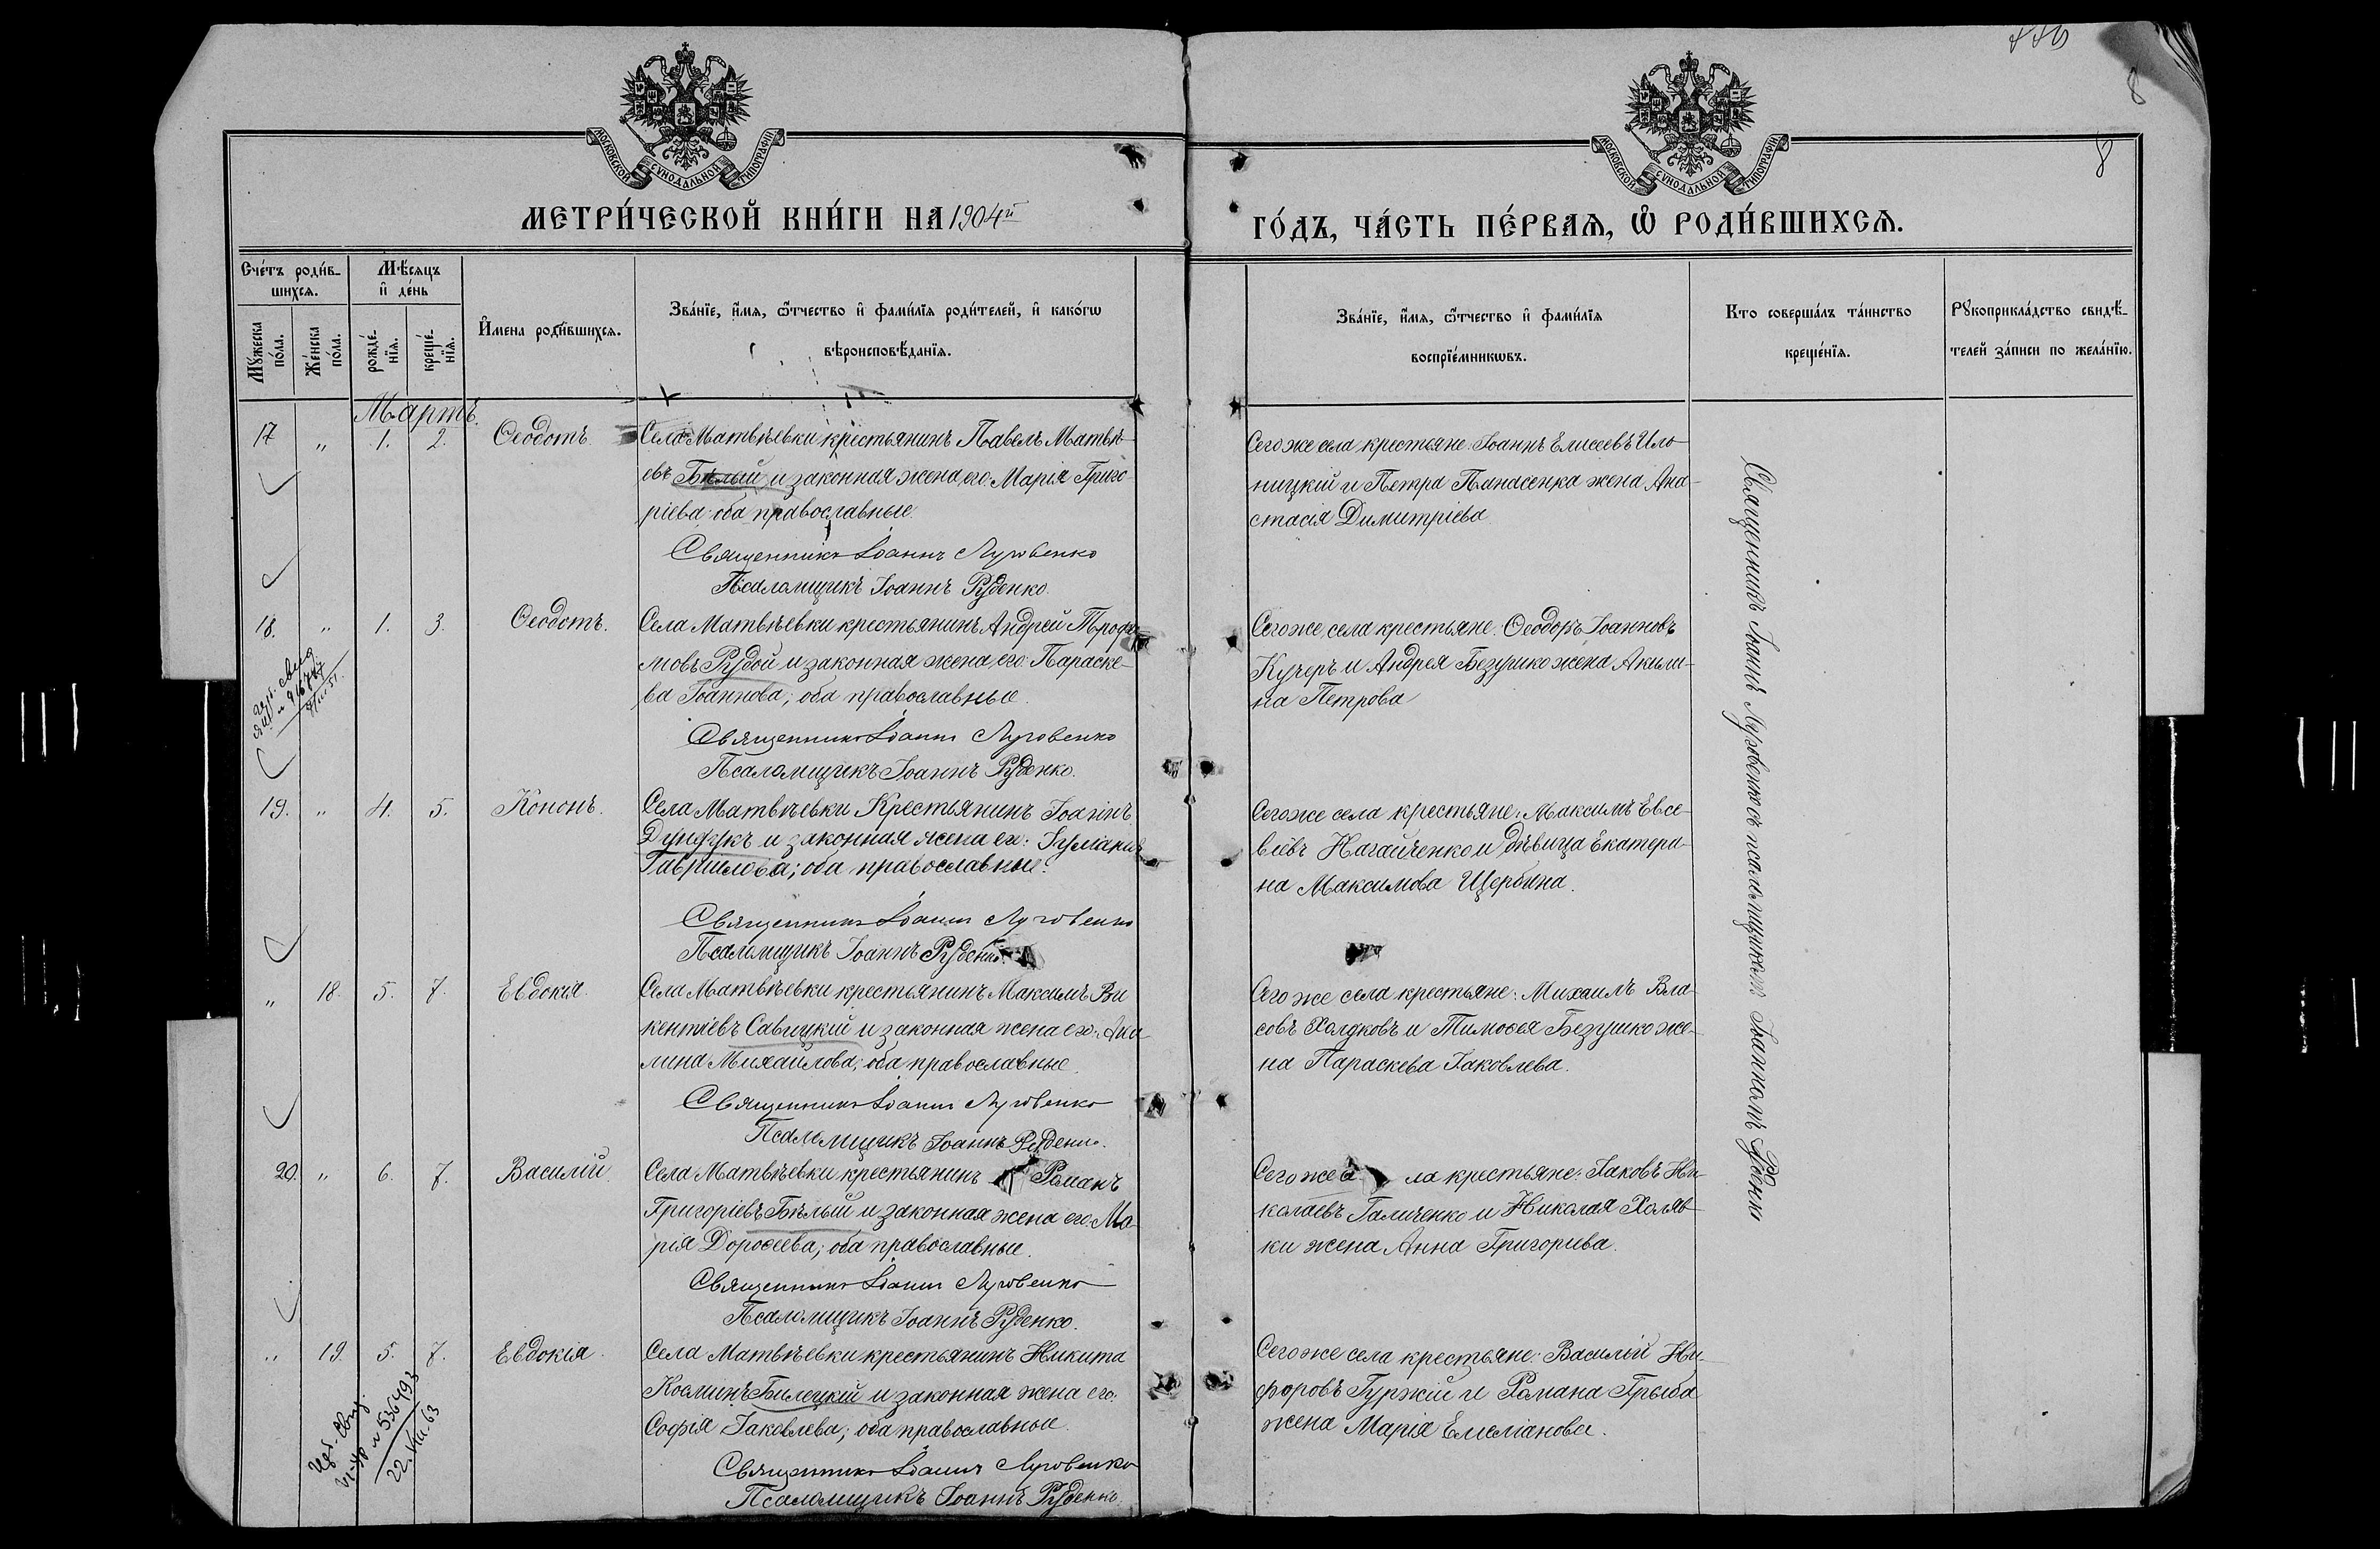 886
8
8
МОСКОВСКОЙ СѴНОДАЛЬНОЙ ТИПОГРАФІИ
МОСКОВСКОЙ СѴНОДАЛЬНОЙ ТИПОГРАФІИ
МЕТРИ́ЧЕСКОЙ КНИ́ГИ НА 1904й
ГО́ДЪ, ЧА́СТЬ ПЕ́РВАѦ, Ѡ РОДИ́ВШИХСѦ.
Сче́тъ роди́в-
шихсѧ.
Мꙋ́жеска по́ла.
Же́нска по́ла.
Мѣ́сѧцъ
и҆ де́нь
рожде́-
нїѧ.
креще́-
нїѧ.
И҆мена роди́вшихсѧ.
Зва́нїе, и҆́мѧ, ѻ҆́тчество и҆ фами́лїѧ роди́телей, и҆ како́гѡ
вѣроисповѣ́данїѧ.
Зва́нїе, и҆́мѧ, ѻ҆́тчество и҆ фами́лїѧ
воспрїе́мникѡвъ.
Кто соверша́лъ та́инство
креще́нїѧ.
Рꙋкоприкла́дство свидѣ́-
телей за́писи по жела́нїю.
Мартъ.
17 " 1. 2. Ѳеодотъ
Села Матвѣевки крестьянинъ Павелъ Матвѣ-
евъ Бѣлый и законная жена его Марія Григо-
ріева; оба православные.
Священникъ Іоаннъ Луговенко
Псаломщикъ Іоаннъ Руденко.
Сего же села крестьяне: Іоаннъ Елисеевъ Иль-
ницкій и Петра Панасенка жена Ана-
стасія Димитріева
18. " 1. 3. Ѳеодотъ.
Села Матвѣевки крестьянинъ Андрей Трофи-
мовъ Рудой и законная жена его: Параске-
ва Іоаннова; оба православные.
Священникъ Іоаннъ Луговенко
Псаломщикъ Іоаннъ Руденко.
Сего же села крестьяне: Ѳеодоръ Іоанновъ
Кучеръ и Андрея Безушко жена Акили-
на Петрова
19. " 4. 5. Кононъ.
Села Матвѣевки Крестьянинъ Іоаннъ
Дундукъ и законная жена его: Іуліанія
Гавриилова; оба православные.
Священникъ Іоаннъ Луговенко
Псаломщикъ Іоаннъ Руденко.
Сего же села крестьяне: Максимъ Евсе-
віевъ Нагайченко и дѣвица Екатери-
на Максимова Щербина.
" 18. 5. 7. Евдокія.
Села Матвѣевки крестьянинъ Максимъ Ви-
кентіевъ Савицкій и законная жена его: Аки-
лина Михайлова; оба православные.
Священникъ Іоаннъ Луговенко
Псаломщикъ Іоаннъ Руденко.
Сего же села крестьяне: Михаилъ Вла-
совъ Холодковъ и Тимоѳея Безушко же-
на Параскева Іаковлева.
20. " 6. 7. Василій.
Села Матвѣевки крестьянинъ Романъ
Григоріевъ Бѣлый и законная жена его: Ма-
рія Дороѳеева; оба православные.
Священникъ Іоаннъ Луговенко
Псаломщикъ Іоаннъ Руденко.
Сего же села крестьяне: Іаковъ Ни-
колаевъ Галиченко и Николая Холяв-
ки жена Анна Григорьева.
" 19. 5. 7. Евдокія.
Села Матвѣевки крестьянинъ Никита
Косминъ Билецкій и законная жена его:
Софія Іаковлева; оба православные.
Священникъ Іоаннъ Луговенко
Псаломщикъ Іоаннъ Руденко.
Сего же села крестьяне: Василій Ни-
форовъ Гуржій и Романа Грыба
жена Марія Емеліанова.
Священникъ Іоаннъ Луговенко съ псаломщикомъ Іоанномъ Руденко
22.VIII.63